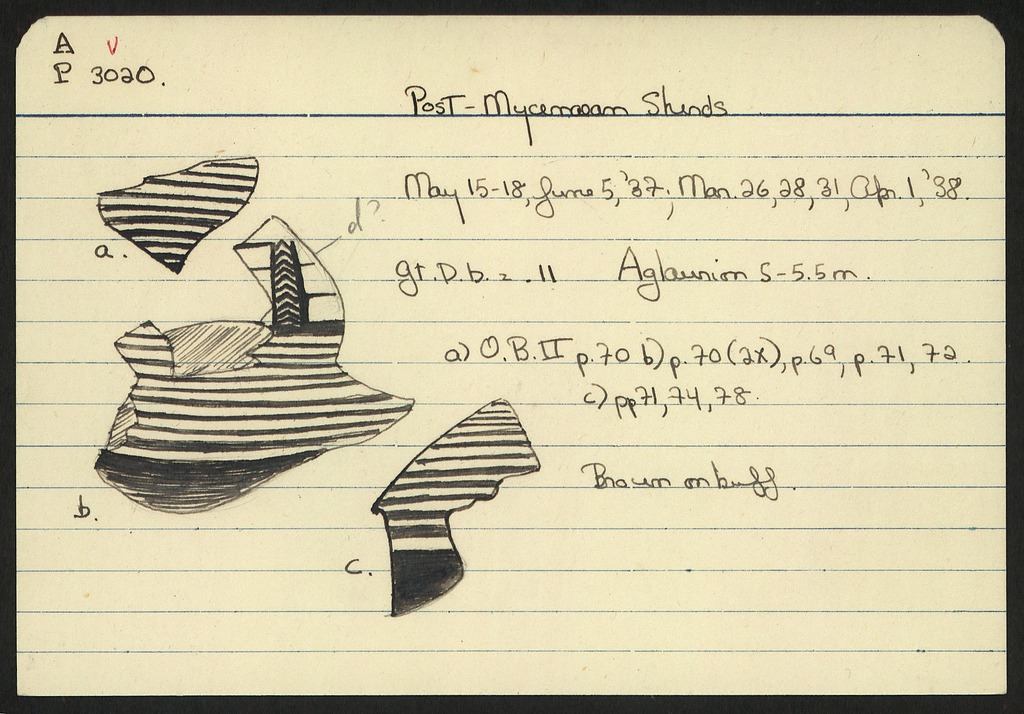 A V
P 3020.
Post-Mycenaean Sherds
May 15-18, June 5, '37; Mar. 26, 28, 31, Apr. 1, '38.
a.
d?
gr. D. b. = .11 Aglaurion S-5.5m.
a) O.B. II p. 70 b) p. 70 (2x), p. 69, p. 71, 72.
c) pp 71, 74, 78.
Brown on buff.
b.
c.